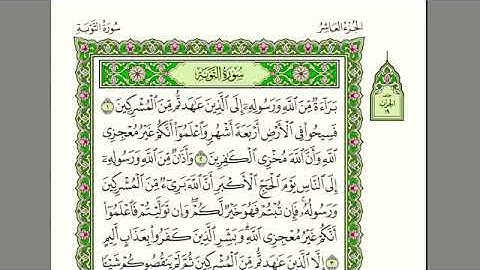 سُورَةُ التَّوْبَةِ
الجُزْءُ العَاشِرُ
سُورَةُ التَّوْبَةِ
بَرَآءَةٌ مِّنَ ٱللَّهِ وَرَسُولِهِۦٓ إِلَى ٱلَّذِينَ عَٰهَدتُّم مِّنَ ٱلْمُشْرِكِينَ ١
فَسِيحُوا۟ فِى ٱلْأَرْضِ أَرْبَعَةَ أَشْهُرٍ وَٱعْلَمُوٓا۟ أَنَّكُمْ غَيْرُ مُعْجِزِى
ٱللَّهِ وَأَنَّ ٱللَّهَ مُخْزِى ٱلْكَٰفِرِينَ ٢ وَأَذَٰنٌ مِّنَ ٱللَّهِ وَرَسُولِهِۦٓ
إِلَى ٱلنَّاسِ يَوْمَ ٱلْحَجِّ ٱلْأَكْبَرِ أَنَّ ٱللَّهَ بَرِىٓءٌ مِّنَ ٱلْمُشْرِكِينَ
وَرَسُولُهُۥ فَإِن تُبْتُمْ فَهُوَ خَيْرٌ لَّكُمْ وَإِن تَوَلَّيْتُمْ فَٱعْلَمُوٓا۟
أَنَّكُمْ غَيْرُ مُعْجِزِى ٱللَّهِ وَبَشِّرِ ٱلَّذِينَ كَفَرُوا۟ بِعَذَابٍ أَلِيمٍ
٣ إِلَّا ٱلَّذِينَ عَٰهَدتُّم مِّنَ ٱلْمُشْرِكِينَ ثُمَّ لَمْ يَنقُصُوكُمْ شَيْـًٔا
الحِزْبُ
١٩